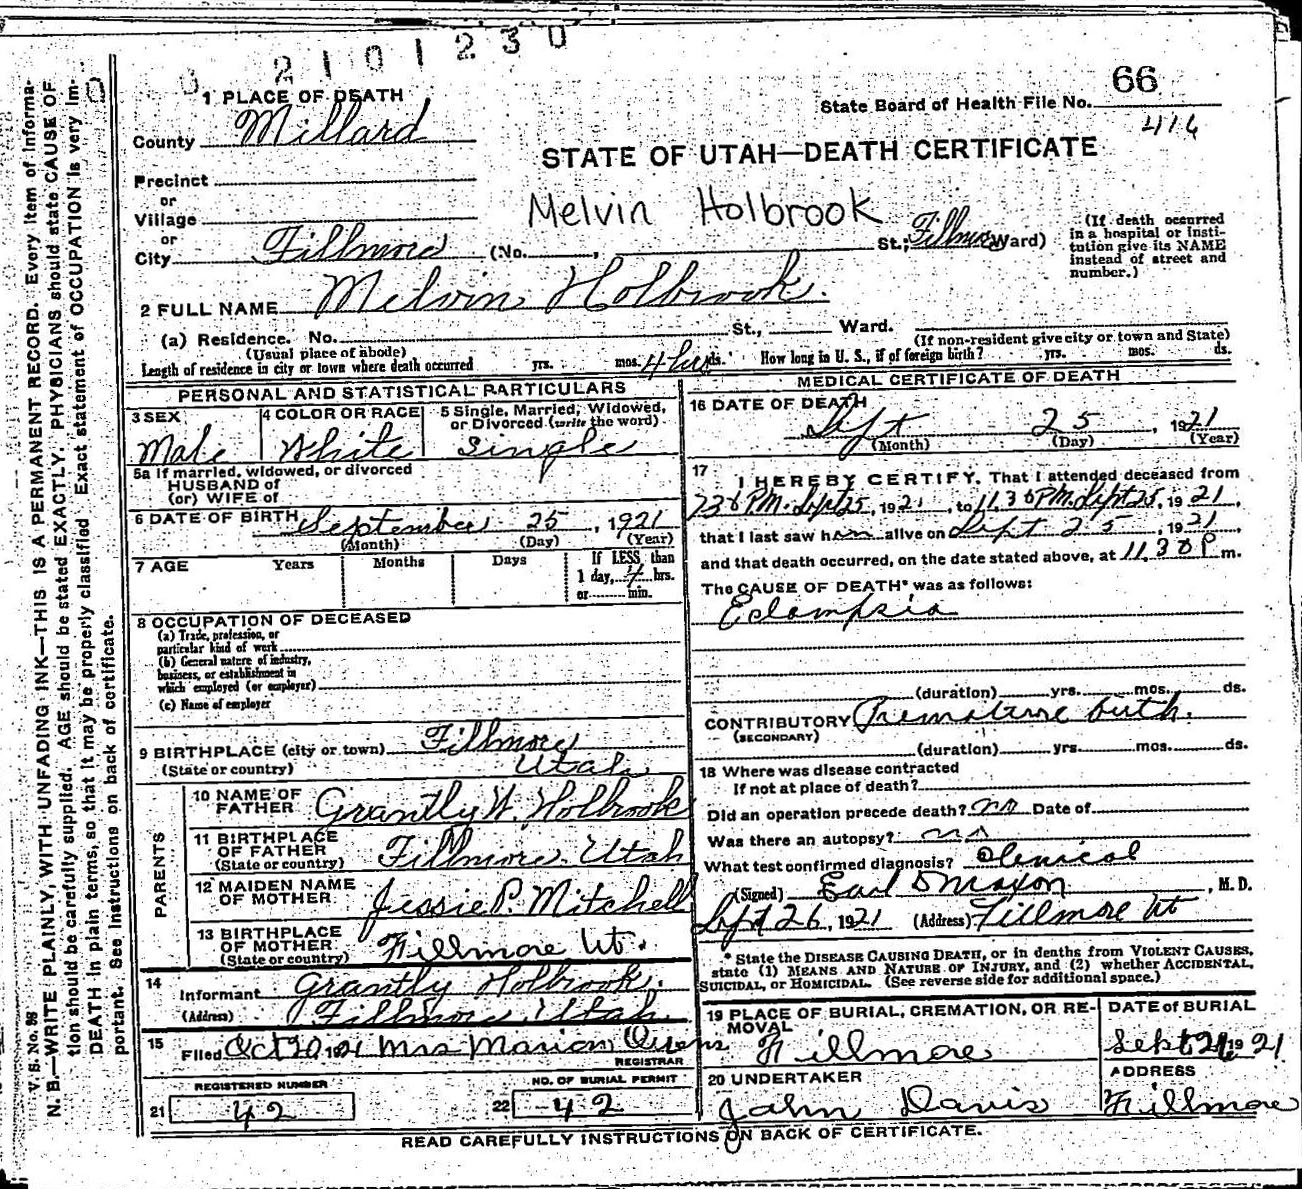 2101230
66
State Board of Health File No.
416
1 PLACE OF DEATH
County Millard
STATE OF UTAH—DEATH CERTIFICATE
Precinct
or
Village
Melvin Holbrook
or
City Fillmore (No. , St.; Fillmore Ward)
(If death occurred in a hospital or institution give its NAME instead of street and number.)
2 FULL NAME Melvin Holbrook.
(a) Residence. No. St., Ward.
(Usual place of abode) (If non-resident give city or town and State)
Length of residence in city or town where death occurred yrs. mos. 4 hrs ds. How long in U. S., if of foreign birth? yrs. mos. ds.
PERSONAL AND STATISTICAL PARTICULARS
3 SEX Male
4 COLOR OR RACE White
5 Single, Married, Widowed, or Divorced (write the word) Single
5a If married, widowed, or divorced
HUSBAND of
(or) WIFE of
6 DATE OF BIRTH September 25, 1921
(Month) (Day) (Year)
7 AGE Years Months Days If LESS than
1 day, 4 hrs.
or min.
8 OCCUPATION OF DECEASED
(a) Trade, profession, or
particular kind of work
(b) General nature of industry,
business, or establishment in
which employed (or employer)
(c) Name of employer
9 BIRTHPLACE (city or town) Fillmore
(State or country) Utah
PARENTS
10 NAME OF FATHER Grantly W. Holbrook
11 BIRTHPLACE OF FATHER (State or country) Fillmore. Utah
12 MAIDEN NAME OF MOTHER Jessie P. Mitchell
13 BIRTHPLACE OF MOTHER (State or country) Fillmore Ut.
14 Informant Grantly Holbrook.
(Address) Fillmore. Utah
15 Filed Oct 20, 1921 Mrs Marion Owens
REGISTRAR
REGISTERED NUMBER
21 42
NO. OF BURIAL PERMIT
22 42
MEDICAL CERTIFICATE OF DEATH
16 DATE OF DEATH
Sept 25, 1921
(Month) (Day) (Year)
17 I HEREBY CERTIFY, That I attended deceased from
730 PM. Sept 25, 1921, to 11.30 PM. Sept 25, 1921,
that I last saw him alive on Sept 25, 1921
and that death occurred, on the date stated above, at 11.30 P m.
The CAUSE OF DEATH* was as follows:
Eclampsia
(duration) yrs. mos. ds.
CONTRIBUTORY Premature birth.
(SECONDARY)
(duration) yrs. mos. ds.
18 Where was disease contracted
If not at place of death?
Did an operation precede death? no Date of
Was there an autopsy? no
What test confirmed diagnosis? Clinical
(Signed) Earl D Maxon, M. D.
Sept 26, 1921 (Address) Fillmore Ut
* State the DISEASE CAUSING DEATH, or in deaths from VIOLENT CAUSES,
state (1) MEANS AND NATURE OF INJURY, and (2) whether ACCIDENTAL,
SUICIDAL, or HOMICIDAL. (See reverse side for additional space.)
19 PLACE OF BURIAL, CREMATION, OR REMOVAL
Fillmore
DATE of BURIAL
Sept 1921
20 UNDERTAKER
John Davis
ADDRESS
Fillmore
READ CAREFULLY INSTRUCTIONS ON BACK OF CERTIFICATE.
V. S. No. 98
N. B.—WRITE PLAINLY, WITH UNFADING INK—THIS IS A PERMANENT RECORD. Every item of information should be carefully supplied. AGE should be stated EXACTLY. PHYSICIANS should state CAUSE OF DEATH in plain terms, so that it may be properly classified. Exact statement of OCCUPATION is very important. See instructions on back of certificate.